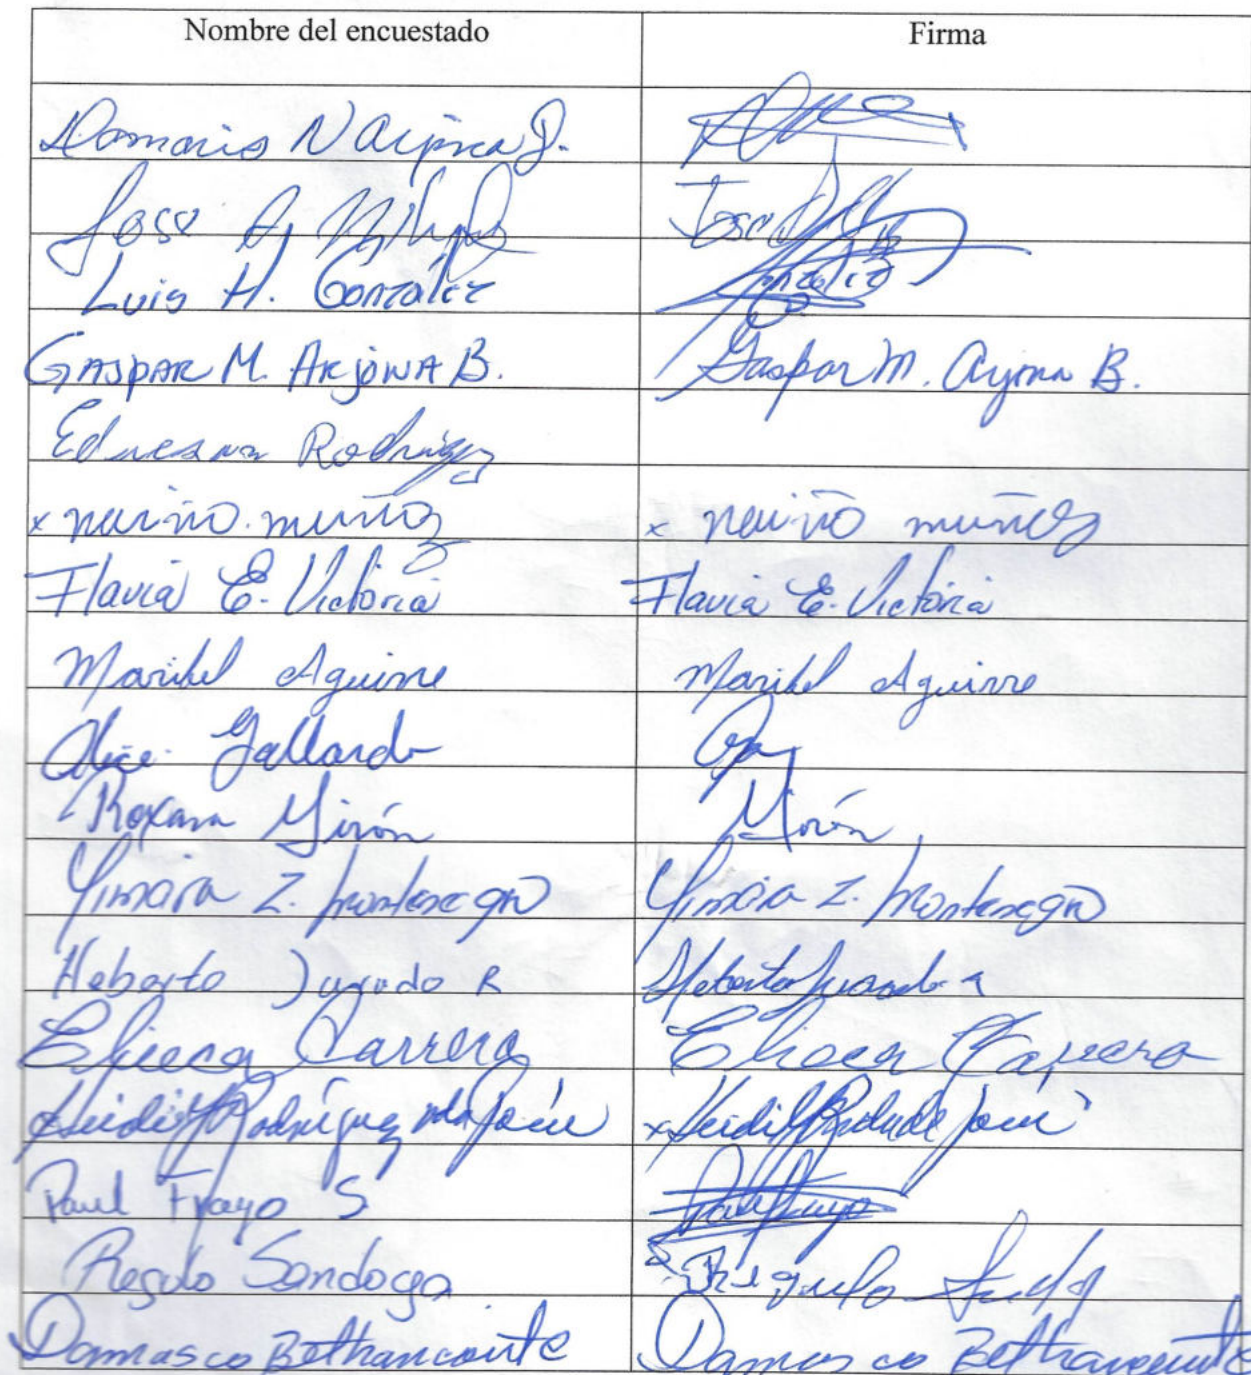 Nombre del encuestado Firma
Damaris N Arjona J.
Jose A
Luis H. González González
GASPAR M. ARJONA B. Gaspar M. Arjona B.
Rodríguez
x muñoz x muñoz
Flavia E. Victoria Flavia E. Victoria
Maribel Aguirre Maribel Aguirre
Gallardo
Roxana Mirón Mirón
Yimaira Z. Montenegro Yimaira Z. Montenegro
Heberto Jurado R Heberto Jurado R
Eliecer Carrera Eliecer Carrera
x Heidi Rodríguez de x Heidi
Paul Trayo S
Regulo Sandoya Regulo
Damasco Bethancourte Damasco Bethancourte